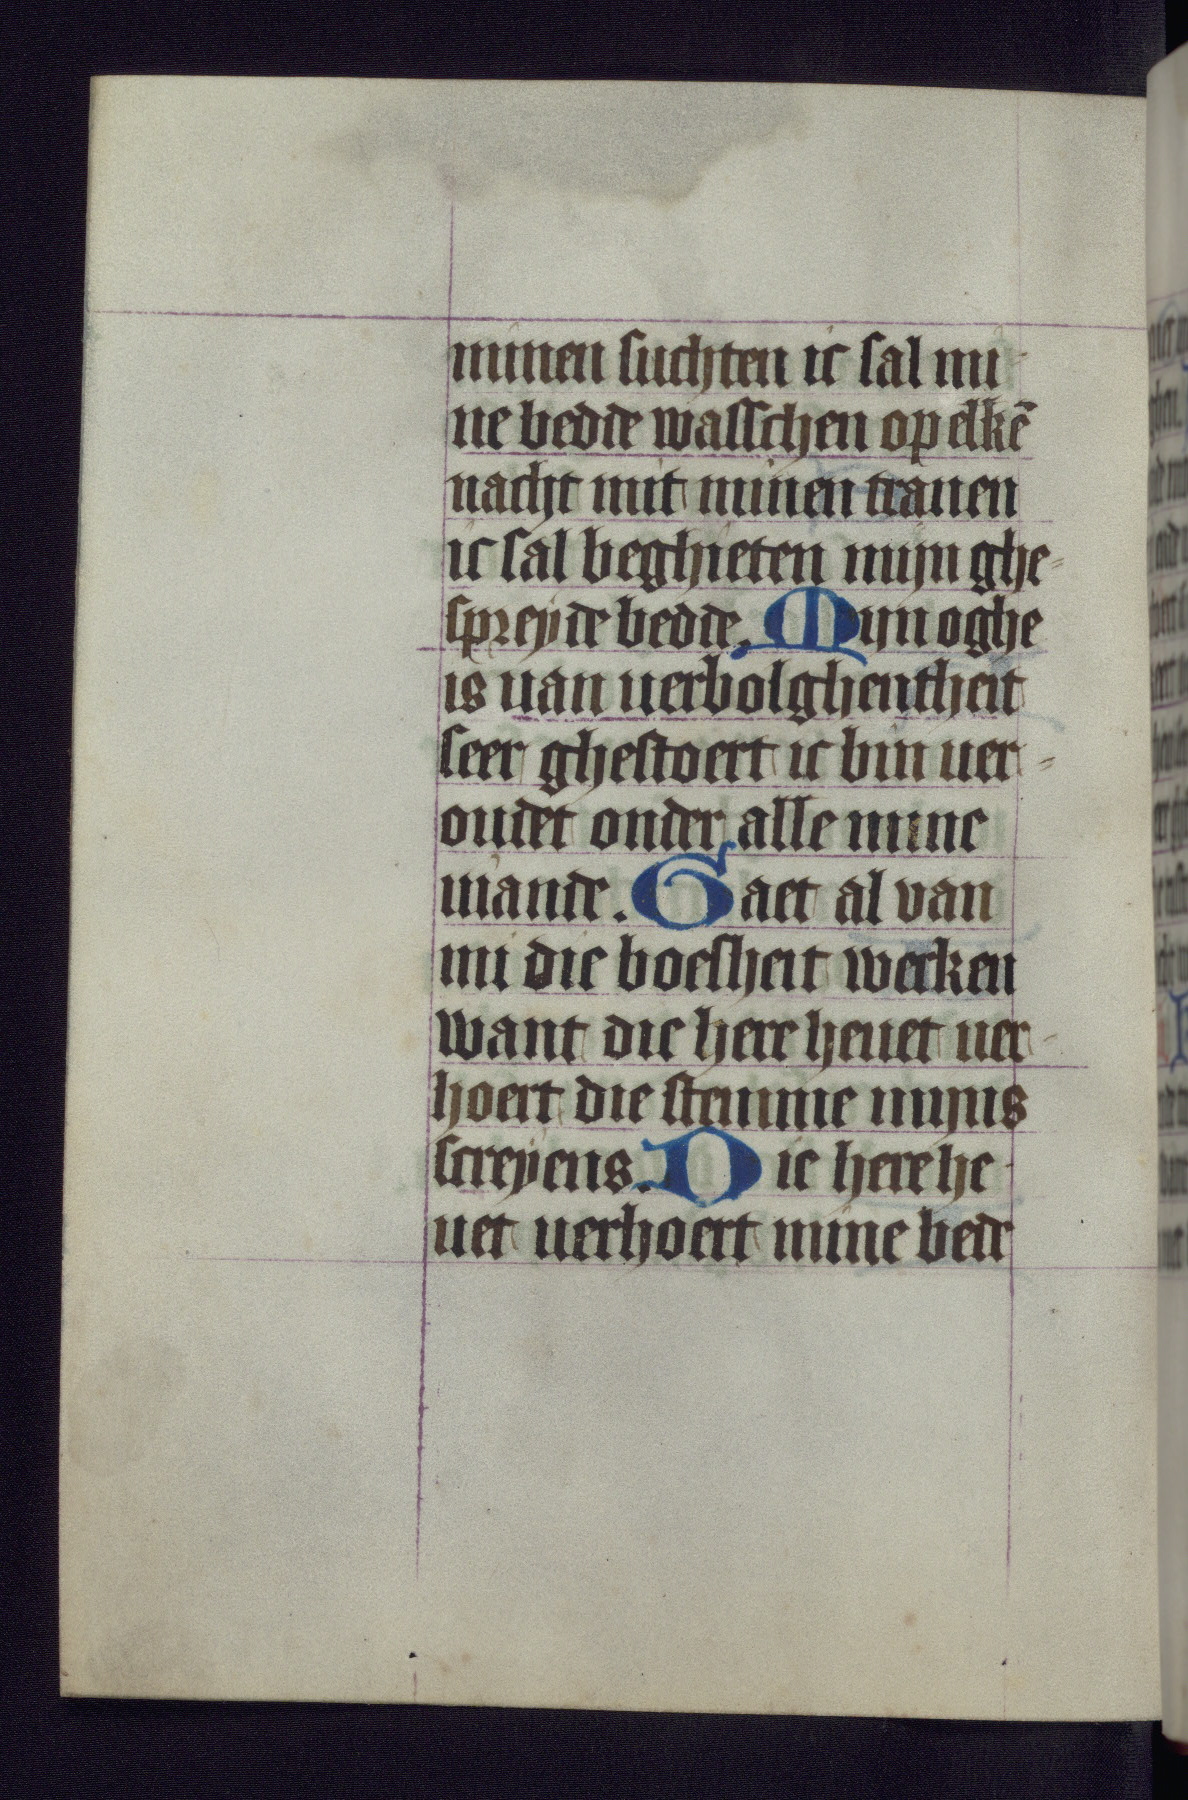 minen suchten ic sal mi-
ne bedde wasschen op elkē
nacht mit minen tranen
ic sal beghieten mijn ghe-
spreyde bedde. Mijn oghe
is uan uerbolghentheit
seer ghestoert ic bin uer-
oudet onder alle mine
uiande. Gaet al van
mi die boesheit werken
want die here heuet uer-
hoert die stemme mijns
screyens. Die here he-
uet uerhoert mine bede